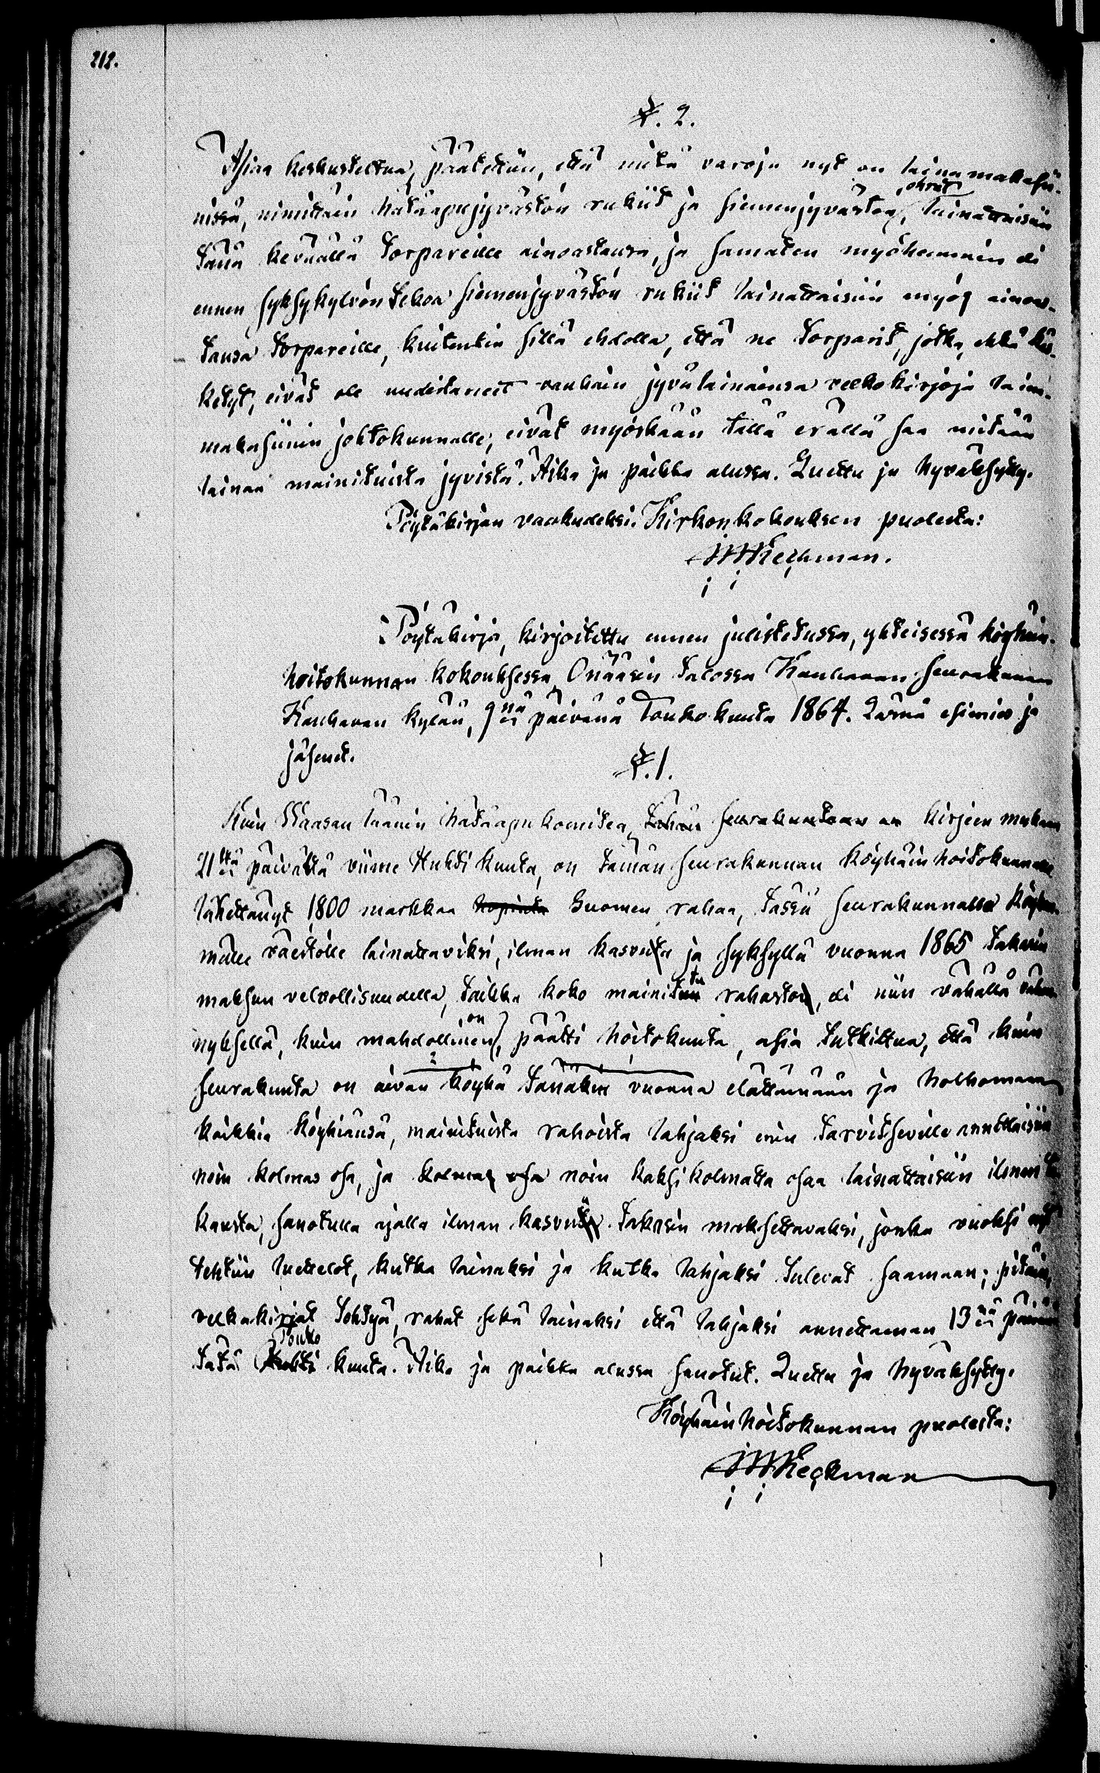 212.
§. 2.
Asian keskusteltua, päätettiin, että mitä varoja nyt on lainamakasi-
nissä, nimittäin hätäapujyvästön rukiit ja siemenjyvästön, ohrat lainattaisiin
tänä keväällä torpareille ainoastansa, ja samaten myöhemmin eli
ennen syksykylvön tekoa siemenjyvästön rukiit lainattaisiin myös ainoas-
tansa torpareille, kuitenkin sillä ehdolla, että ne torparit, jotka, ehkä käs-
ketyt, eivät ole uudistaneet vanhain jyvälainainsa velkakirjoja laina-
makasiinin johtokunnalle, eivät myöskään tällä erällä saa mitään
lainaa mainituista jyvistä. Aika ja paikka alussa. Luettu ja hyväksytty.
Pöytäkirjan vakuudeksi. Kirkonkokouksen puolesta:
Pöytäkirja, kirjoitettu ennen julistetussa, yhteisessä köyhäin-
hoitokunnan kokouksessa, Onaasin talossa Kauhavan seurakunnan
Kauhavan kylän, 9nä päivänä Toukokuuta 1864. Läsnä esimies ja
jäsenet.
§. 1.
Kuin Waasan läänin hätäapukomitea, tähän seurakuntaan on kirjeen mukaan
21tä päivältä viime Huhtikuuta, on tämän seurakunnan köyhäinhoitokunnalle
lähettänyt 1800 markkaa hopiata Suomen rahaa, tässä seurakunnassa köyhem-
mälle väestölle lainattaviksi, ilman kasvuta ja syksyllä vuonna 1865 takasin
maksun velvollisuudella, taikka koko mainitun rahaston, eli niin vähällä
nyksellä, kuin mahdollinen on, päätti hoitokunta, asia tutkittua, että kuin
seurakunta on aivan köyhä tänäkin vuonna elättämään ja holhomaan
kaikkia köyhiänsä, mainituista rahoista lahjaksi enin tarvitseville annettaisiin
noin kolmas osa, ja kolmas osa noin kaksi kolmatta osaa lainattaisiin ilman
kautta, sanotulla ajalla ilman kasvuta takasin maksettavaksi, jonka vuoksi nyt
tehtiin luettelot, kutka lainaksi ja kutka lahjaksi tulevat saamaan; pitäin,
velkakirjat tehtyä, rahat sekä lainaksi että lahjaksi annettaman 13nä päivänä
tätä Huhti Touko kuuta. Aika ja paikka alussa sanotut. Luettu ja hyväksytty.
Köyhäinhoitokunnan puolesta: